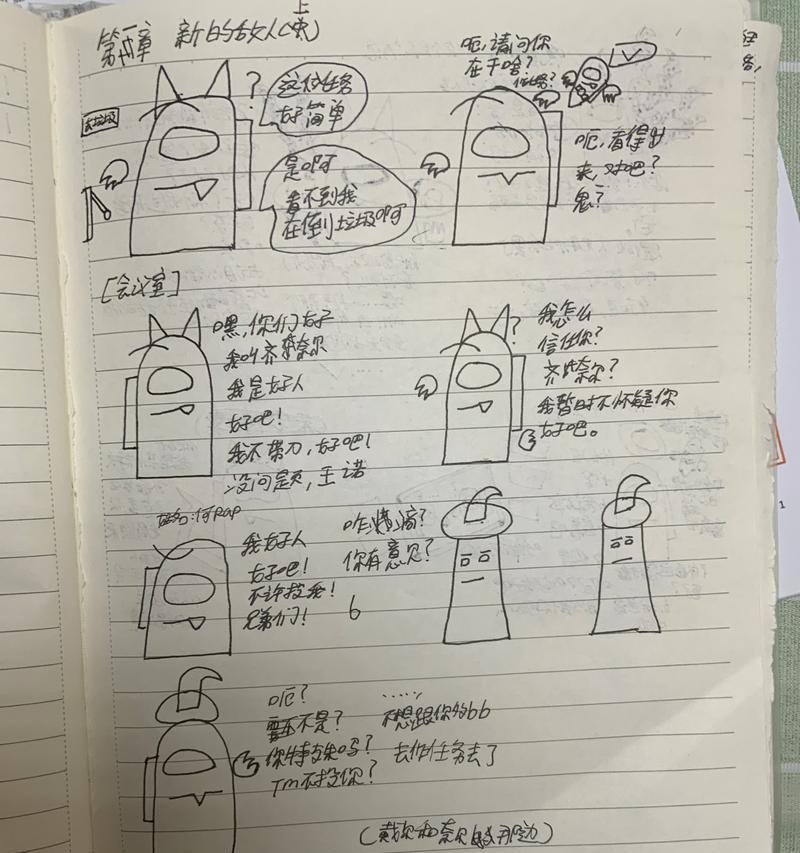 第一章 新的敌人(上)
这位任务
好简单
是啊
看不到我
在倒垃圾啊
去垃圾
呃,请问你
在干啥?
任务?
呃,看得出
来,对吧?
鬼?
[会议室]
嘿,你们好
我叫齐 奈尔
我是好人
好吧!
我不带刀,好吧!
没问题,王诺
我怎么
信任你?
齐 奈尔?
我暂时不怀疑你
好吧。
我好人
好吧!
不许投我!
兄弟们!
咋,情 滴?
你有意见?
6
呃?
不是?
你 吗?
Tm不投你?
……
不想跟你 bb
去作任务去了
( 和奈尔 )
1